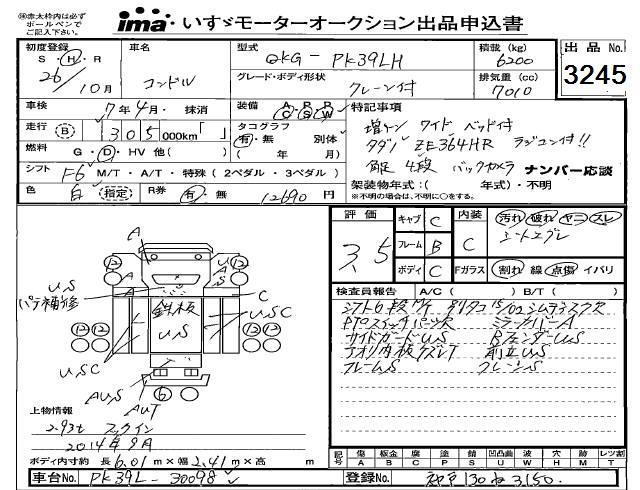 ㊟赤太枠内は必ず
ボールペンで
ご記入下さい。
ima いすゞモーターオークション出品申込書
初度登録 車名 型式 QKG - PK39LH 積載 (kg) 6200 出品 No.
S・H・R 26/10月 コンドル グレード・ボディ形状 クレーン付 排気量 (cc) 7010 3245
車検 7年4月・抹消 装備 A/C P/S P/W 特記事項
走行 (B) 305,000km「 」 タコグラフ 有・無 別体 増トン ワイド ベッド付
( 年 月) タダノ ZE364HR ラジコン付!!
燃料 G・D・HV 他( )
シフト F6 M/T・A/T・特殊(2ペダル・3ペダル) 4段 バックカメラ ナンバー応談
色 白 (指定) R券 有・無 12690円 架装物年式:( 年式)・不明
※不明の場合は、不明に○をする。
評価 3.5 キャブ C 内装 C 汚れ 破れ ヤニ スレ
フレーム B
ボディ C Fガラス 割れ 線 点傷 イバリ
A
12 12
U.S
パテ補修
A
A
U
A
S
鉄板
U.S
C
USC
USC
12 12
12 12
AUS
AUT
6
検査員報告 A/C( ) B/T( )
PTOスイッチパーツR ミラーカバーA
サイドガードUS BフェンダーUS
アオリ内板クズレT 前立US
フレームS クレーンS
上物情報
2.93t フックイン
2014年9月
ボディ内寸約 長 6.01 m×幅 2.41 m×高 m
記号 傷 A 板金 B 腐 C 塗 P 錆 S 凹凸曲 U 波 W 穴 H 跡 M レツ割 T
車台No. PK39L-30098 登録No. 130 ね 3150